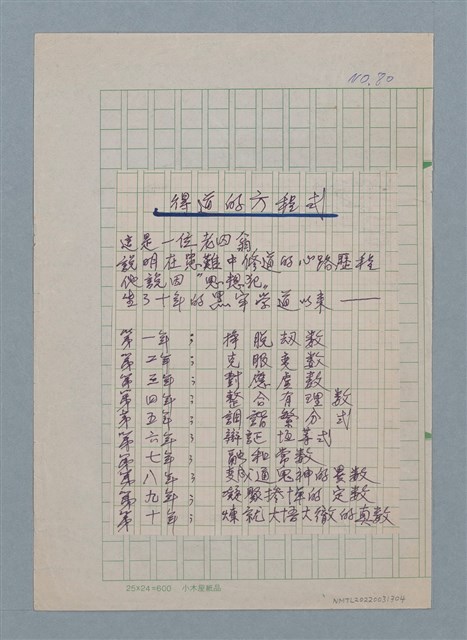 NO.80
得道的方程式
這是一位老囚翁
說明在患難中修道的心路歷程
他說因"思想犯"
坐了十年的黑牢学道以來——
第一年； 掙脫劫数
第二年； 克服変数
第三年； 對應虛数
第四年； 整合有理数
第五年； 調諧繁分式
第六年； 辯証恆等式
第七年； 融和常数
第八年； 通鬼神的畏数
第九年； 凝聚十年的定数
第十年； 煉就大悟大徹的真数
25×24=600 小木屋紙品
NMTL20220031704